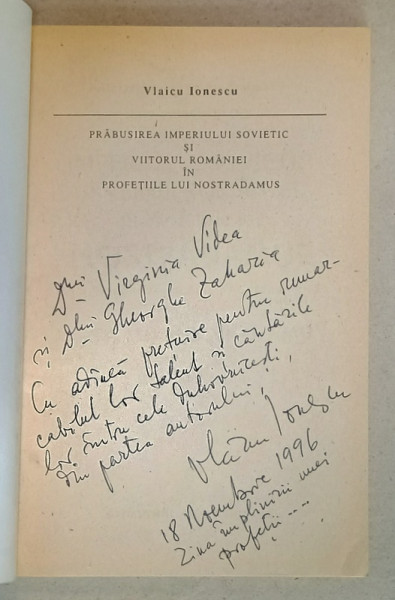 Vlaicu Ionescu
PRĂBUSIREA IMPERIULUI SOVIETIC
ȘI
VIITORUL ROMÂNIEI
ÎN
PROFEȚIILE LUI NOSTRADAMUS
Dnei Virginia Videa
și Dlui Gheorghe Zaharia
Cu adîncă prețuire pentru remar-
cabilul lor talent și căutările
lor întru cele Duhovnicești,
din partea autorului,
Vlaicu Ionescu
18 Noembrie 1996
Ziua împlinirii unei
profeții ...